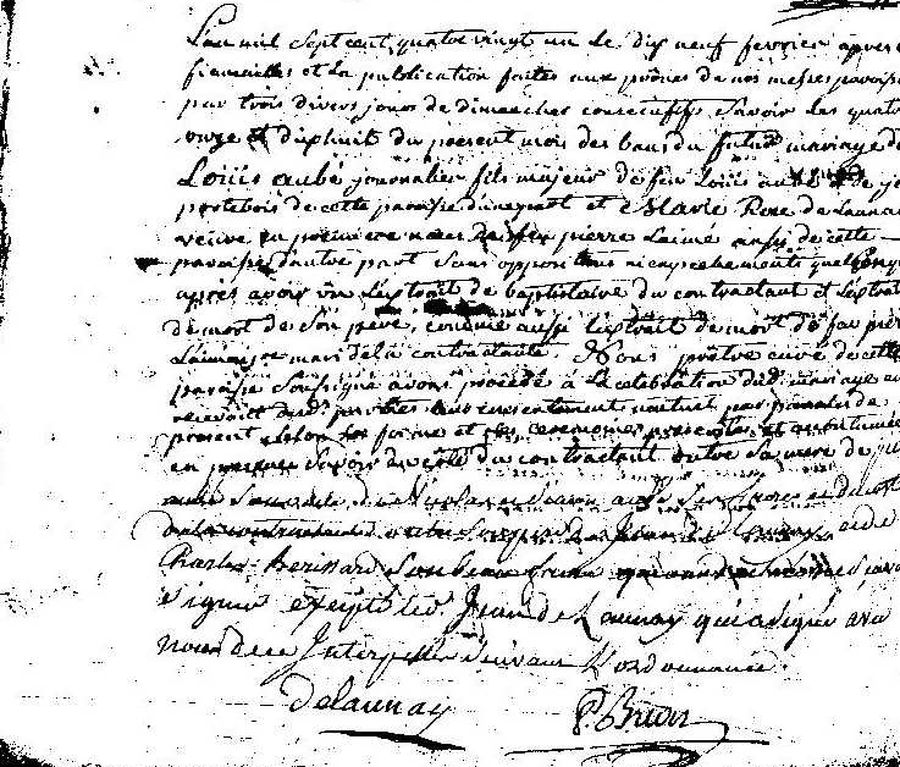 L'an mil sept cent quatre vingt un le dix neuf fevrier apres
fiancailles et la publication faites aux prônes de nos messes paroiss
par trois divers jours de dimanches consecutifs savoir les quatre
onze et dixhuit du present mois des bans du futur mariage de
Loüis aubé journalier fils majeur de feu Loüis aubé de
portebois de cette paroisse d'une part et Marie Rose de Launay
veuve en premiere noces de feu pierre Lainé aussi de cette
paroisse d'autre part sans oppositions ni empechements quelconq
après avoir vu l'extrait de baptistaire du contractant et l'extrait
de mort de son pere, comme aussi l'extrait de mort de feu pier
Lainé mari de la contractante Nous prêtre curé de cette
paroisse soussigné avons procédé à la celebration dud. mariage
recevant desd. parties leur consentement mutuel par paroles de
present selon la forme et les ceremonies prescrites et accoutumées
en presence savoir du côté du contractant outre sa mere de
aubé son oncle de Nicolas aubé ses freres et du côté
de la contractante outre Jean de Launay
Charles Berissard son beau frere
signer excepté led Jean de Launay qui a signé avec
nous de ce Interpellés suivant l'ordonnance.
delaunay P. Brion